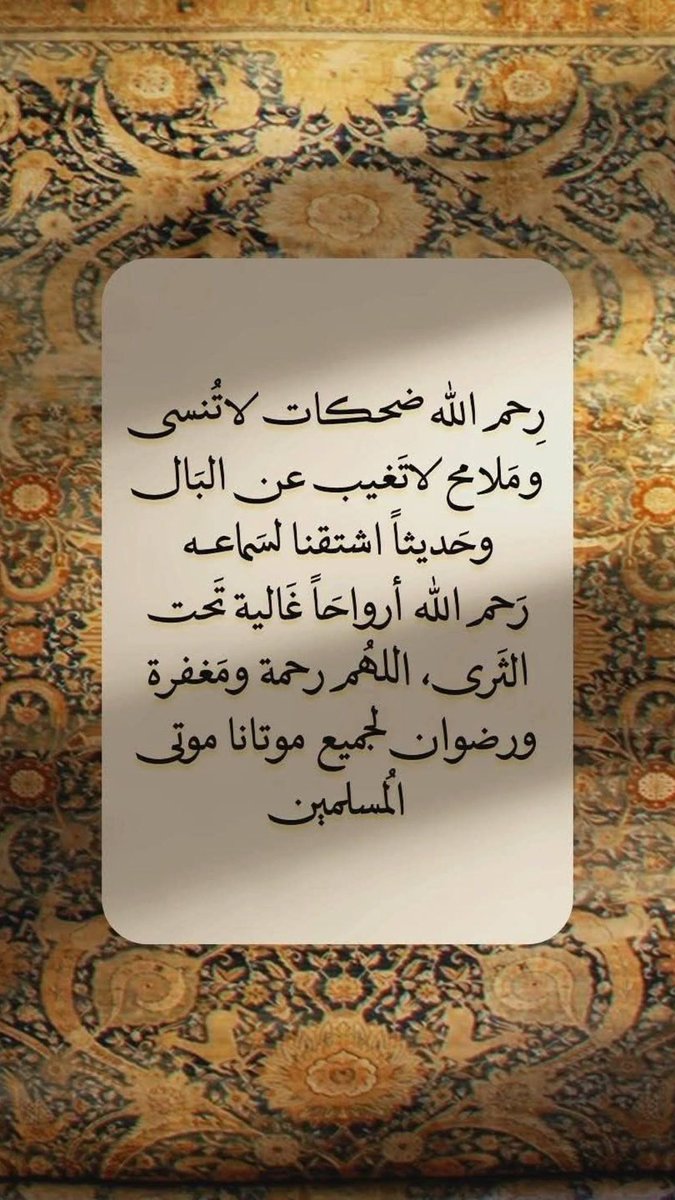 رِحم الله ضحكات لاتُنسى
ومَلامح لاتَغيب عن البَال
وحَديثاً اشتقنا لسَماعـه
رَحم الله أرواحَاً غَالية تَحت
الثَرى، اللهُم رحمة ومَغفرة
ورضوان لجميع موتانا موتى
المُسلمين